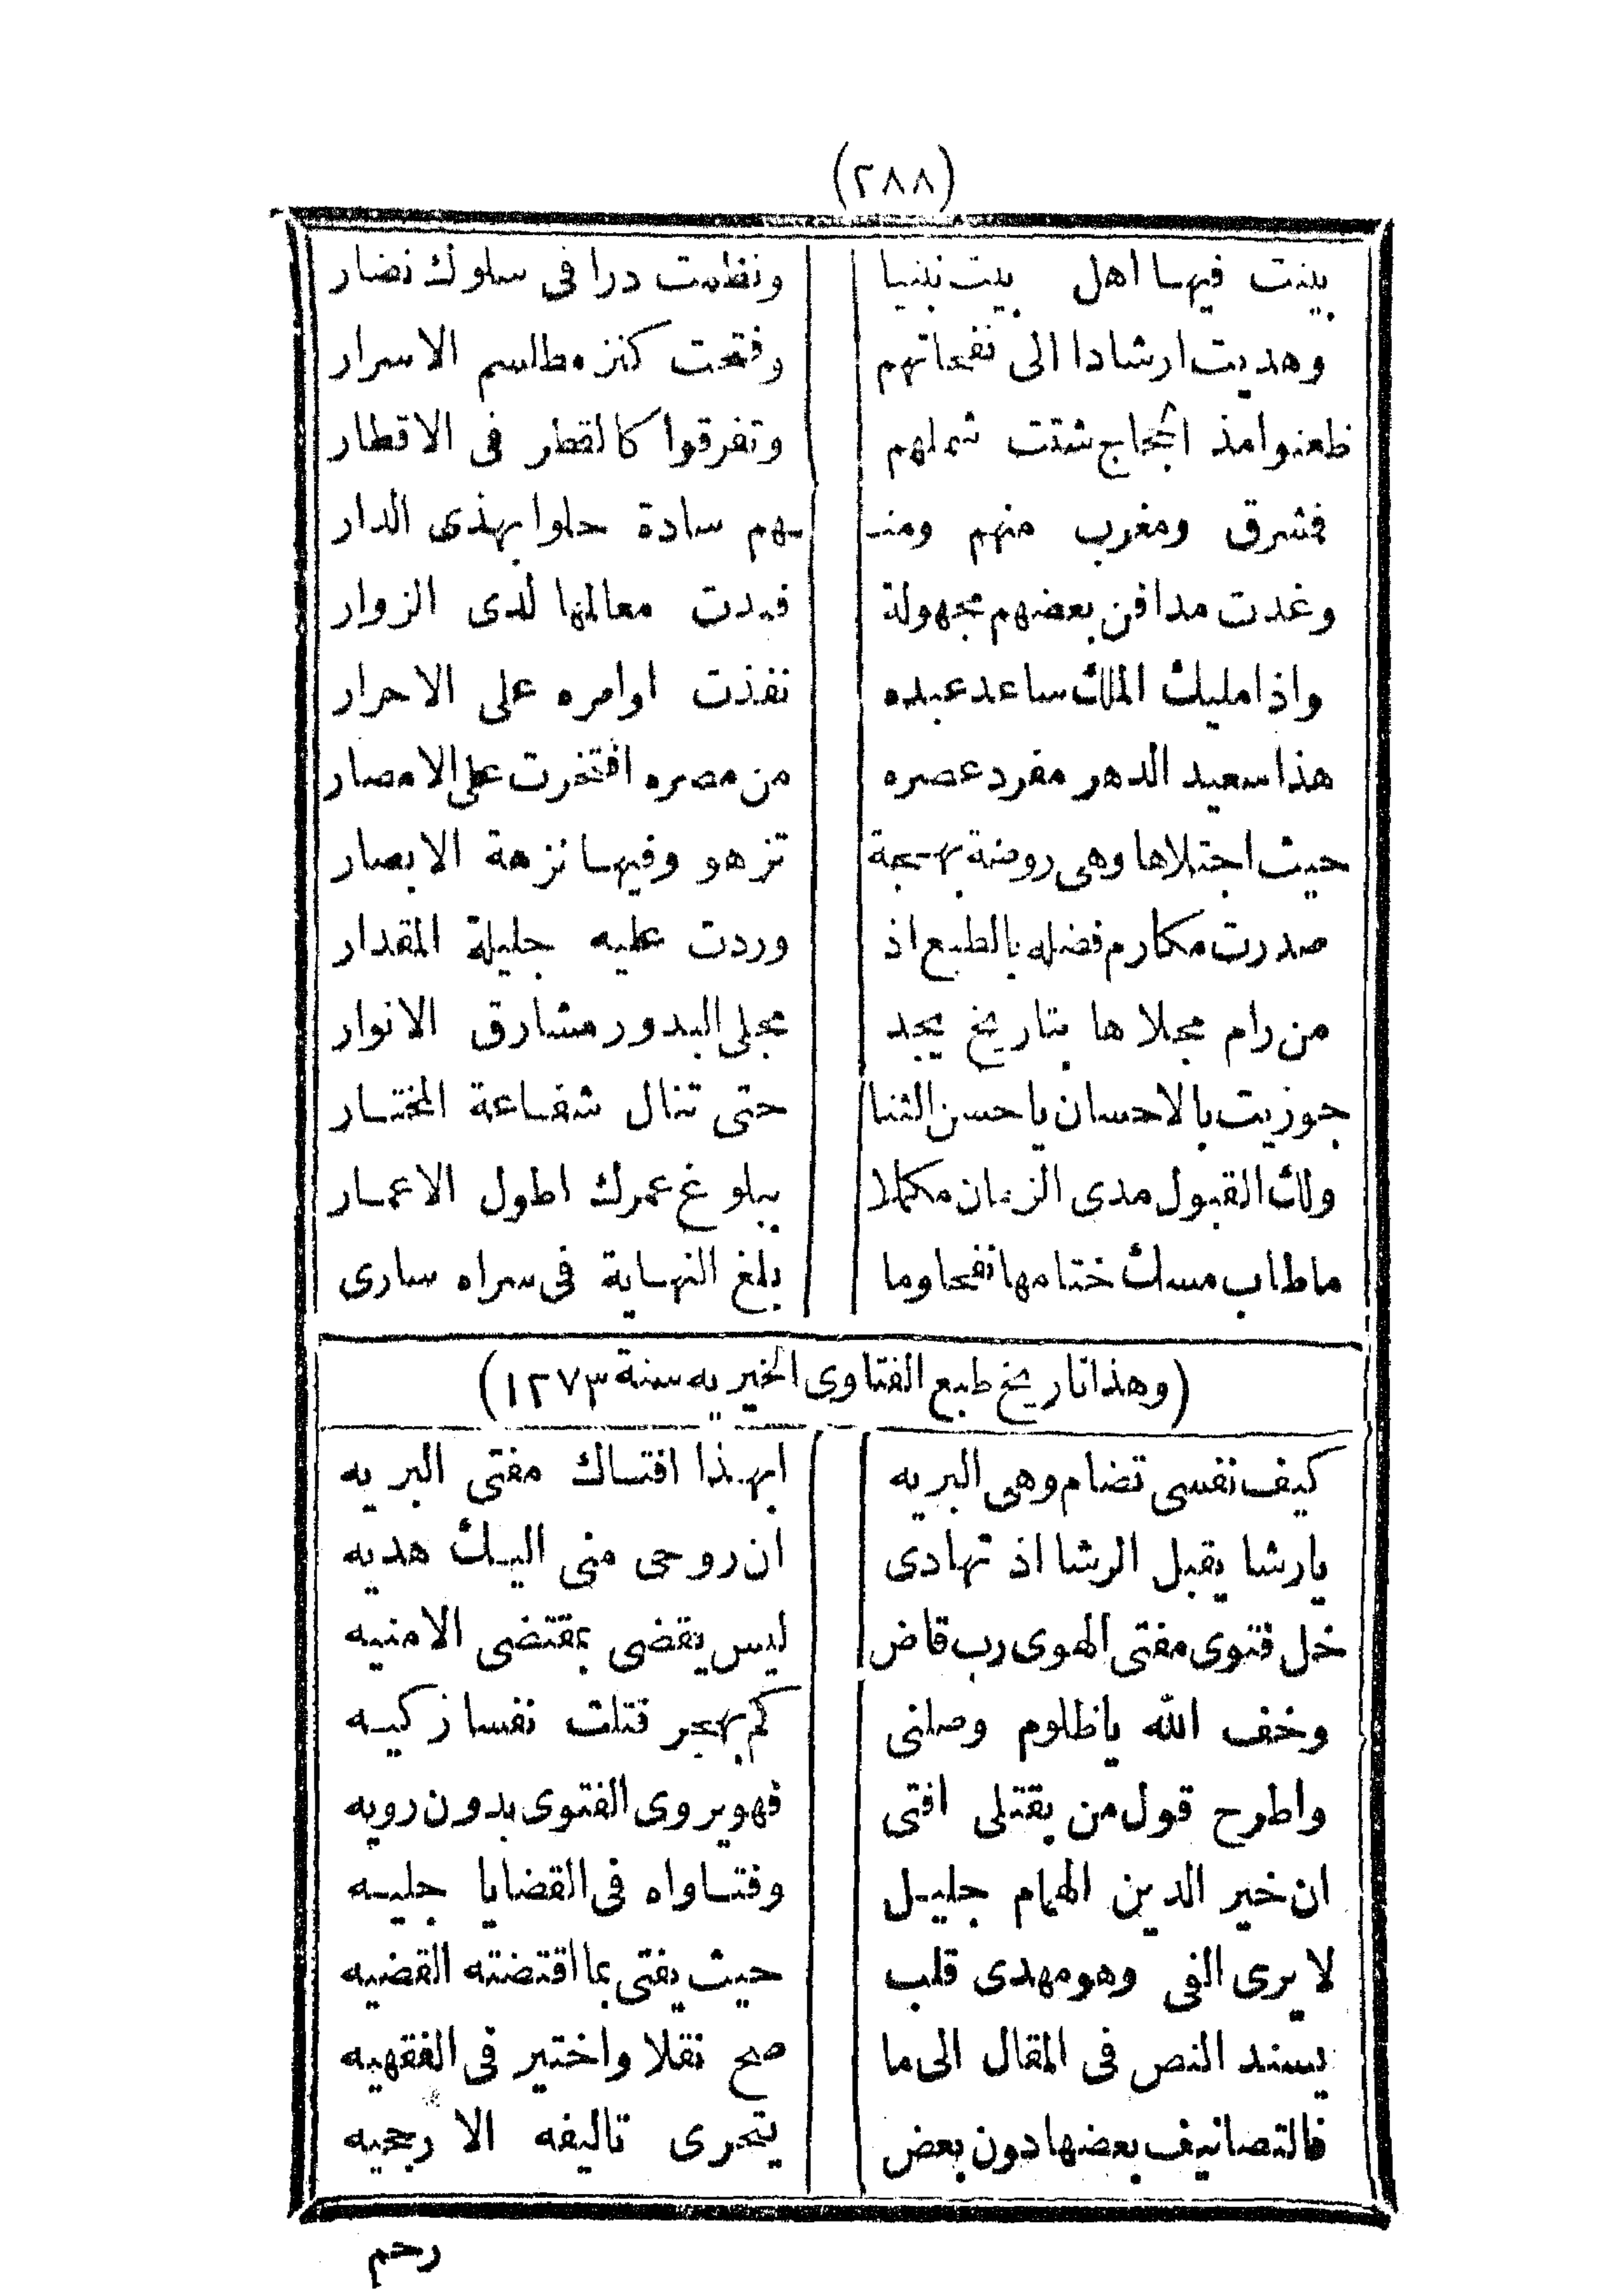 (٢٨٨)
بينت فيها اهل بيت نبينا ونظمت درا فى سلوك نضار
وهديت ارشادا الى نفحاتهم وفتحت كنز مطالسم الاسرار
ظعنوا مذ الحجاج شتت شملهم وتفرقوا كالقطر فى الاقطار
فمشرق ومغرب منهم ومنـ ـهم سادة حلوا بهذى الدار
وغدت مدافن بعضهم مجهولة فبدت معالمها لدى الزوار
واذا مليك الملك ساعد عبده نفذت اوامره على الاحرار
هذا سعيد الدهر مفرد عصره من مصره افتخرت على الامصار
حيث اجتلاها وهى روضة بهجة تزهو وفيها نزهة الابصار
صدرت مكارم فضله بالطبع اذ وردت عليه جليلة المقدار
من رام مجلاها بتاريخ يجد مجلى البدور مشارق الانوار
جوزيت بالاحسان يا حسن الثنا حتى تنال شفاعة المختار
ولك القبول مدى الزمان مكملا ببلوغ عمرك اطول الاعمار
ما طاب مسك ختامها نفحا وما بلغ النهاية فى سراه سارى
(وهذا تاريخ طبع الفتاوى الخيريه سنة ١٢٧٣)
كيف نفسى تضام وهى البريه ابهذا افتاك مفتى البريه
يا رشا يقبل الرشا اذ تهادى ان روحى منى اليك هديه
خل فتوى مفتى الهوى رب قاض ليس يقضى بمقتضى الامنيه
وخف الله يا ظلوم وصلنى كم بهجر قتلت نفسا زكيه
واطرح قول من بقتلى افتى فهو يروى الفتوى بدون رويه
ان خير الدين الهمام جليل وفتاواه فى القضايا جليه
لا يرى الغى وهو مهدى قلب حيث يفتى بما اقتضته القضيه
يسند النص فى المقال الى ما صح نقلا واختير فى الفقهيه
فالتصانيف بعضها دون بعض يتحرى تاليفه الارجحيه
رحم